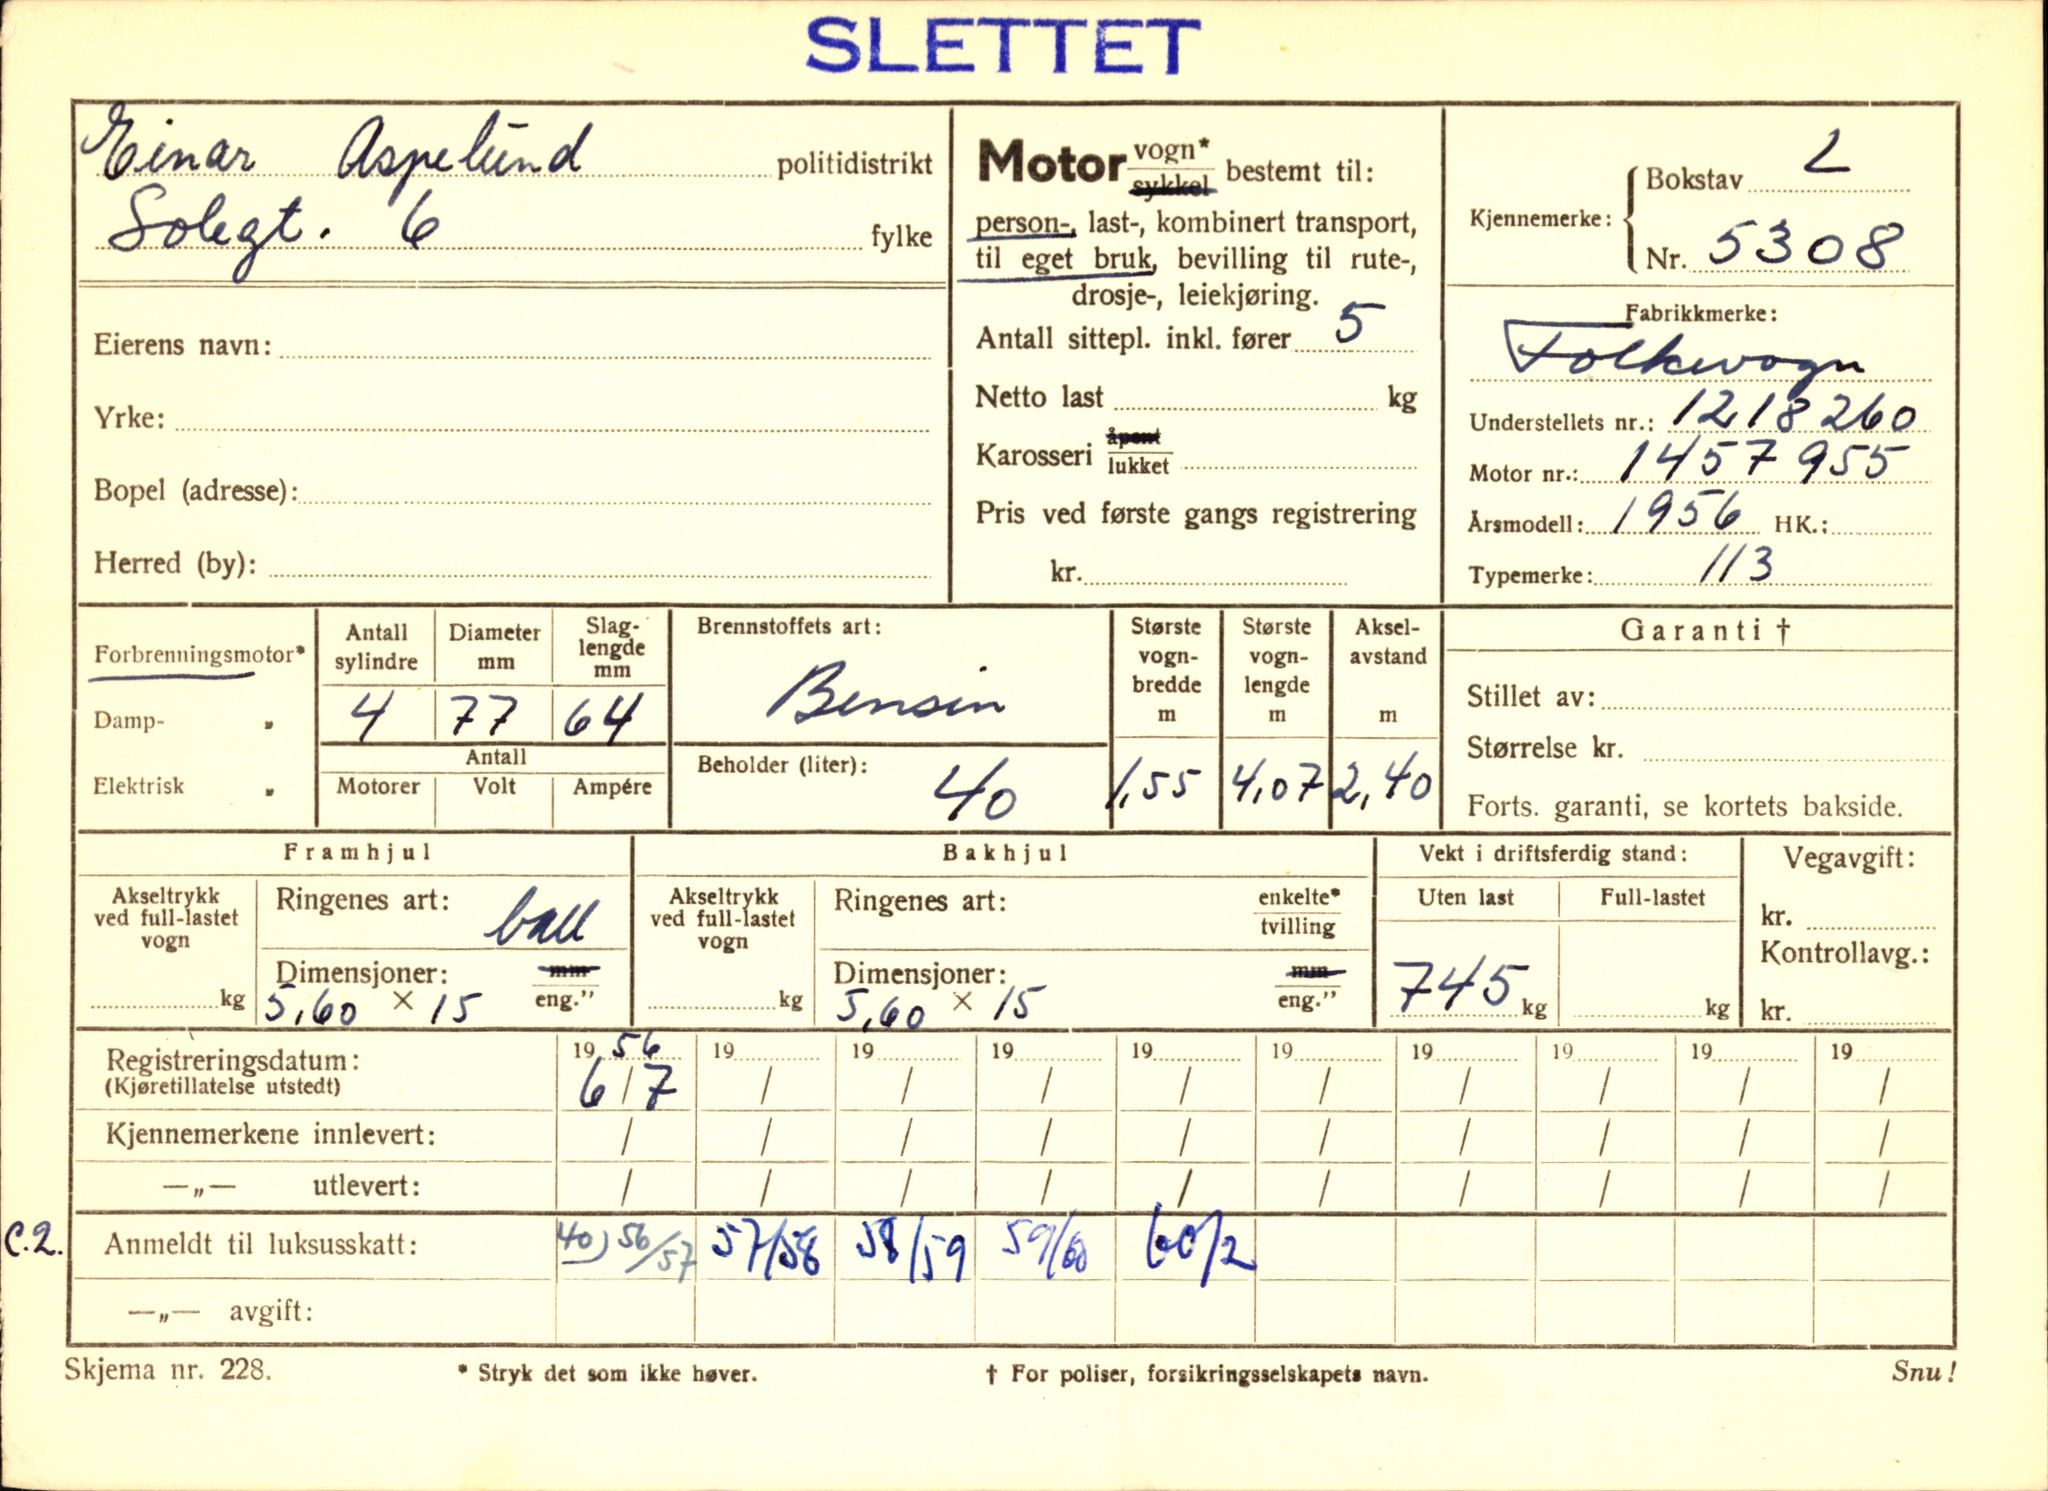 SLETTET
Einar Aspelund politidistrikt
Solegt. 6 fylke
Eierens navn:
Yrke:
Bopel (adresse):
Herred (by):
Motor vogn* sykkel bestemt til:
person-, last-, kombinert transport,
til eget bruk, bevilling til rute-,
drosje-, leiekjøring.
Antall sittepl. inkl. fører 5
Netto last kg
Karosseri åpent lukket
Pris ved første gangs registrering
kr.
Kjennemerke: Bokstav L
Nr. 5308
Fabrikkmerke:
Folkevogn
Understellets nr.: 1218260
Motor nr.: 1457955
Årsmodell: 1956 HK.:
Typemerke: 113
Forbrenningsmotor*
Damp- „
Elektrisk „
Antall sylindre
Diameter mm
Slag-lengde mm
4 77 64
Antall
Motorer Volt Ampére
Brennstoffets art:
Bensin
Beholder (liter):
40
Største vogn-bredde m
1,55
Største vogn-lengde m
4,07
Aksel-avstand m
2,40
Garanti †
Stillet av:
Størrelse kr.
Forts. garanti, se kortets bakside.
Framhjul
Akseltrykk ved full-lastet vogn
kg
Ringenes art: ball
Dimensjoner: mm eng."
5,60 × 15
Bakhjul
Akseltrykk ved full-lastet vogn
kg
Ringenes art: enkelte* tvilling
Dimensjoner: mm eng."
5,60 × 15
Vekt i driftsferdig stand:
Uten last Full-lastet
745 kg kg
Vegavgift:
kr.
Kontrollavg.:
kr.
Registreringsdatum: 1956 19 19 19 19 19 19 19 19 19
(Kjøretillatelse utstedt) 6/7 / / / / / / / / /
Kjennemerkene innlevert: / / / / / / / / / /
—„— utlevert: / / / / / / / / / /
C.2. Anmeldt til luksusskatt: 40) 56/57 57/58 58/59 59/60 60/2
—„— avgift:
Skjema nr. 228. * Stryk det som ikke høver. † For poliser, forsikringsselskapets navn. Snu!